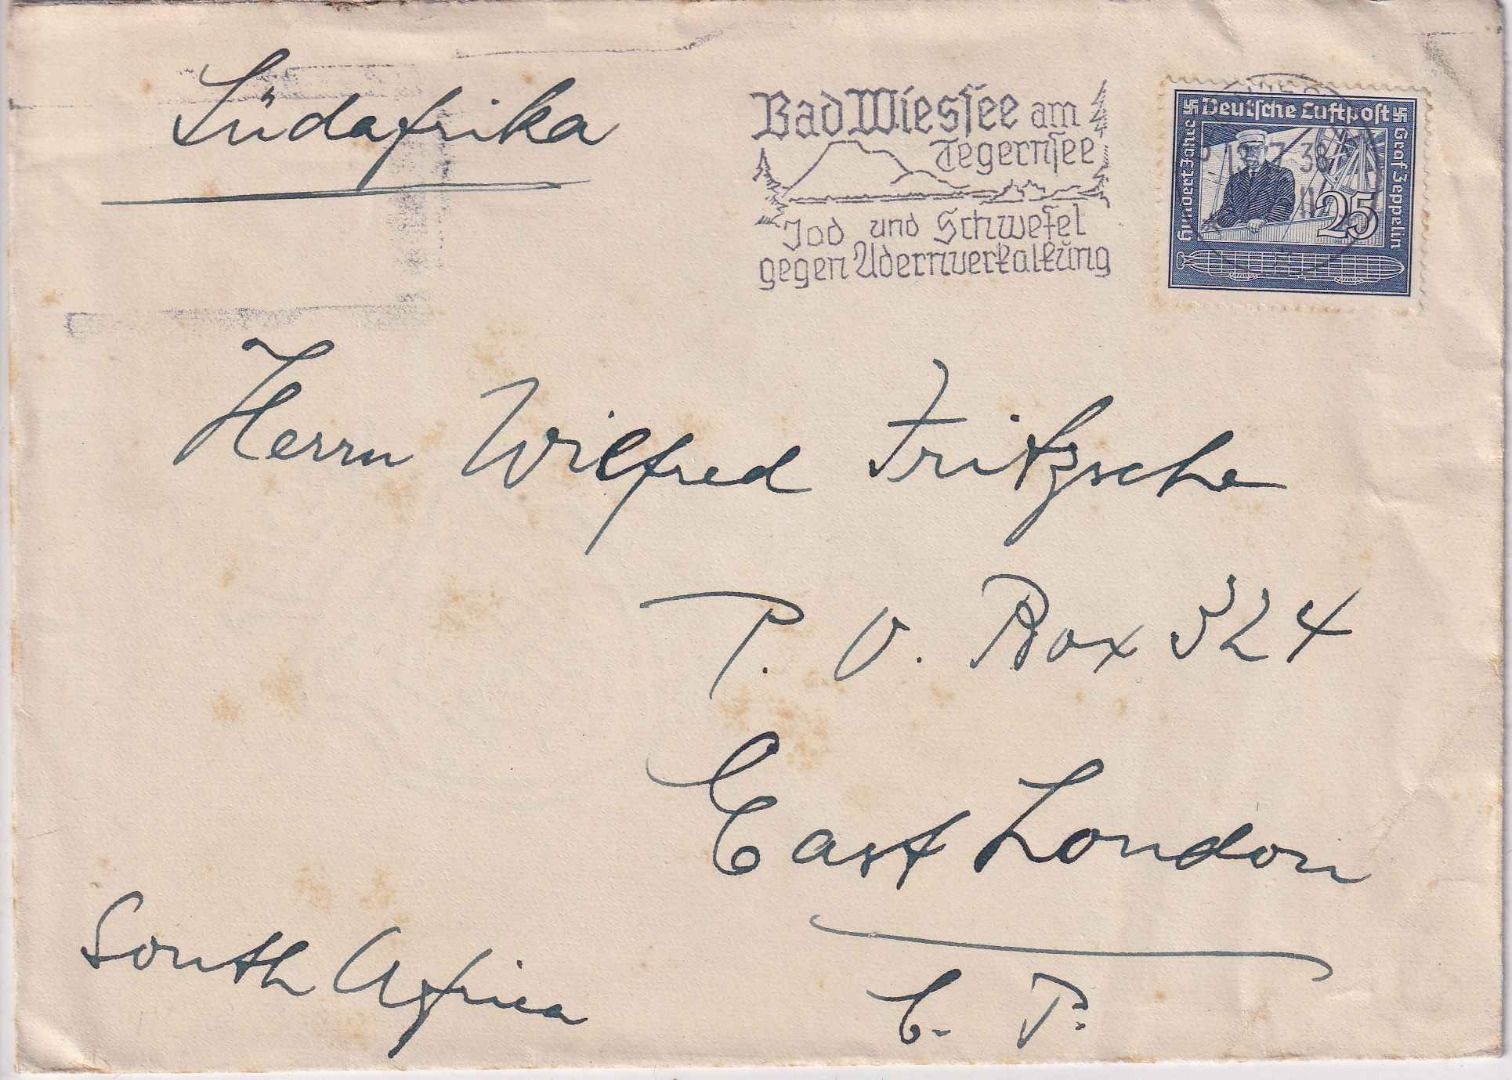 Südafrika
Bad Wiessee am
Tegernsee
Jod und Schwefel
gegen Adernverkalkung
Deutsche Luftpost
Hundert Jahre
Graf Zeppelin
25
13 7 38
Herrn Wilfred Fritzsche
P. O. Box 324
East London
South Africa
C. P.